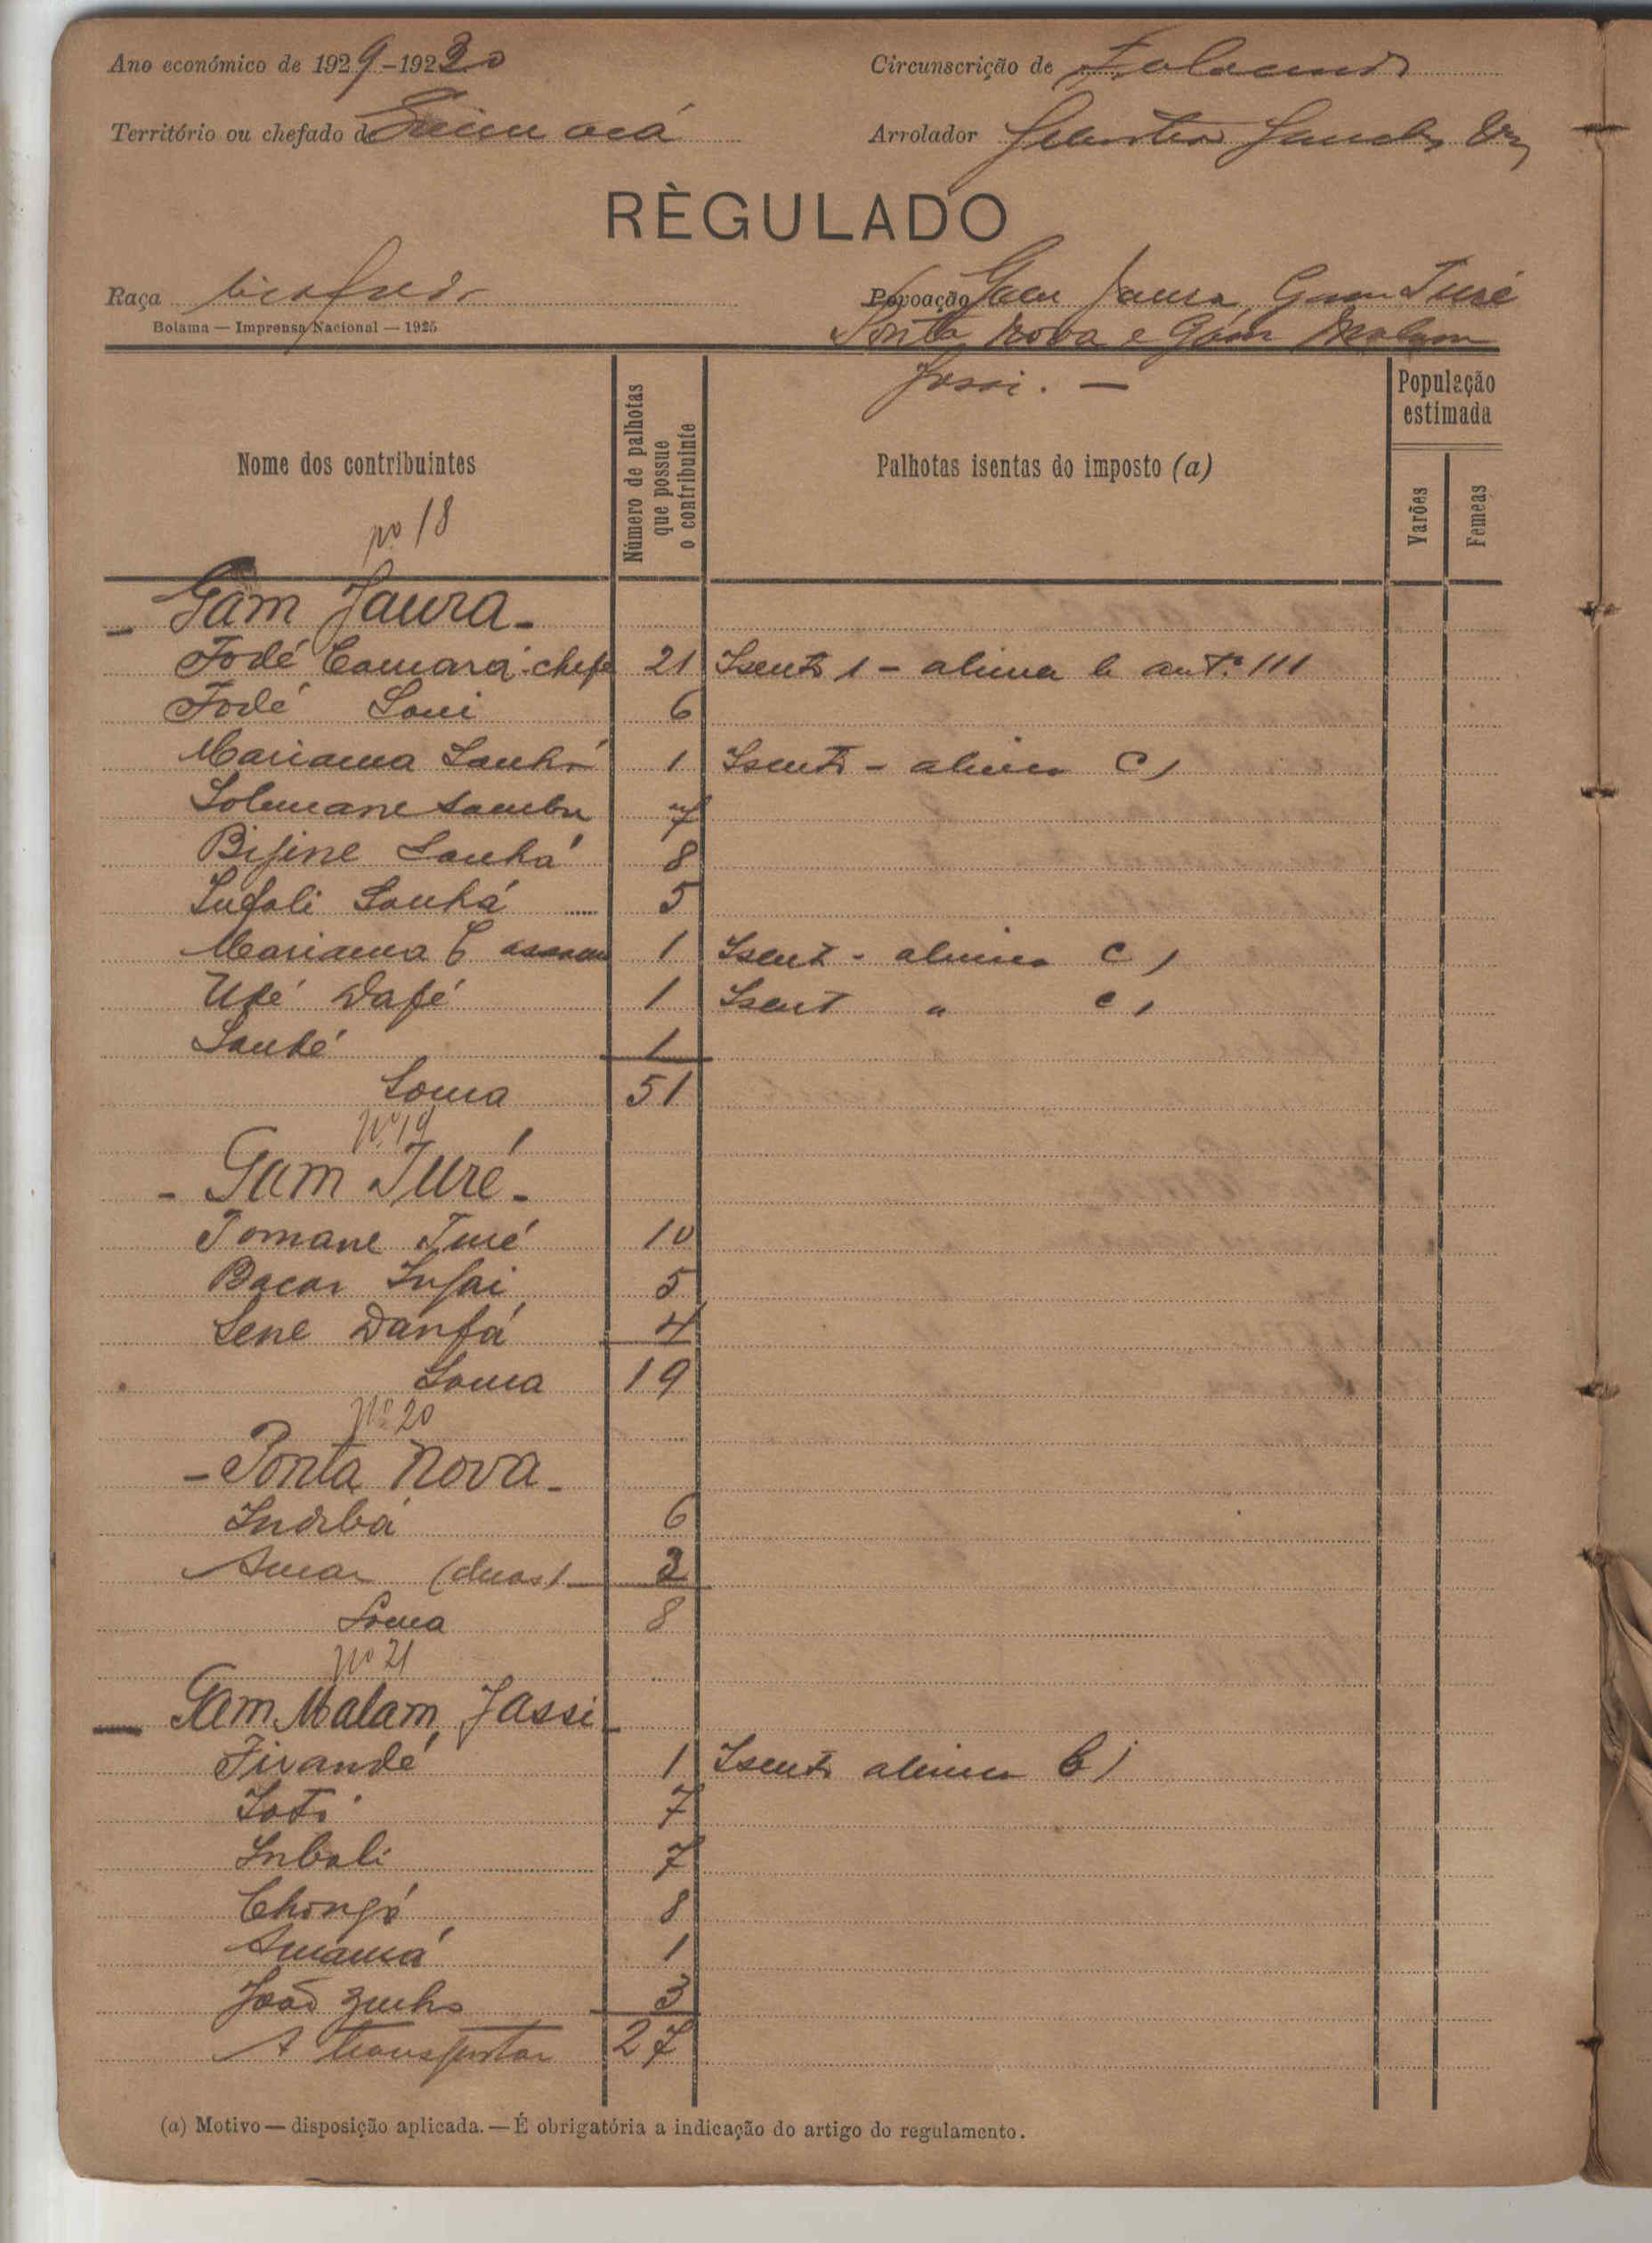 Ano económico de 1929-1930
Circunscrição de Fulacunda
Território ou chefado de
Arrolador
RÈGULADO
Raça biafada
Povoação Gam Jaura, Gam Turé
Ponta Nova e Gam Malam
Jassi. —
Bolama — Imprensa Nacional — 1925
Nome dos contribuintes
Número de palhotas que possue o contribuinte
Palhotas isentas do imposto (a)
População estimada
Varões
Femeas
nº 18
- Gam Jaura -
Fodé Camará - chefe 21 Isento 1 - alinea b art.º 111
Fodé Soni 6
Mariama Sanhá 1 Isento - alinea c)
Solemane Sambu 7
Bijine Sanhá 8
Sufali Sanhá 5
Mariama 1 Isent - alinea c)
Dafé 1 Isent " c)
1
Soma 51
nº 19
- Gam Turé -
Tomane Turé 10
Bacar 5
Sene Danfá 4
Soma 19
nº 20
- Ponta Nova -
Indibá 6
Amar (duas) 2
Soma 8
nº 21
- Gam Malam Jassi -
Firandé 1 Isento alinea b)
7
Inbali 7
Chongó 8
1
João 3
A transportar 27
(a) Motivo — disposição aplicada. — É obrigatória a indicação do artigo do regulamento.